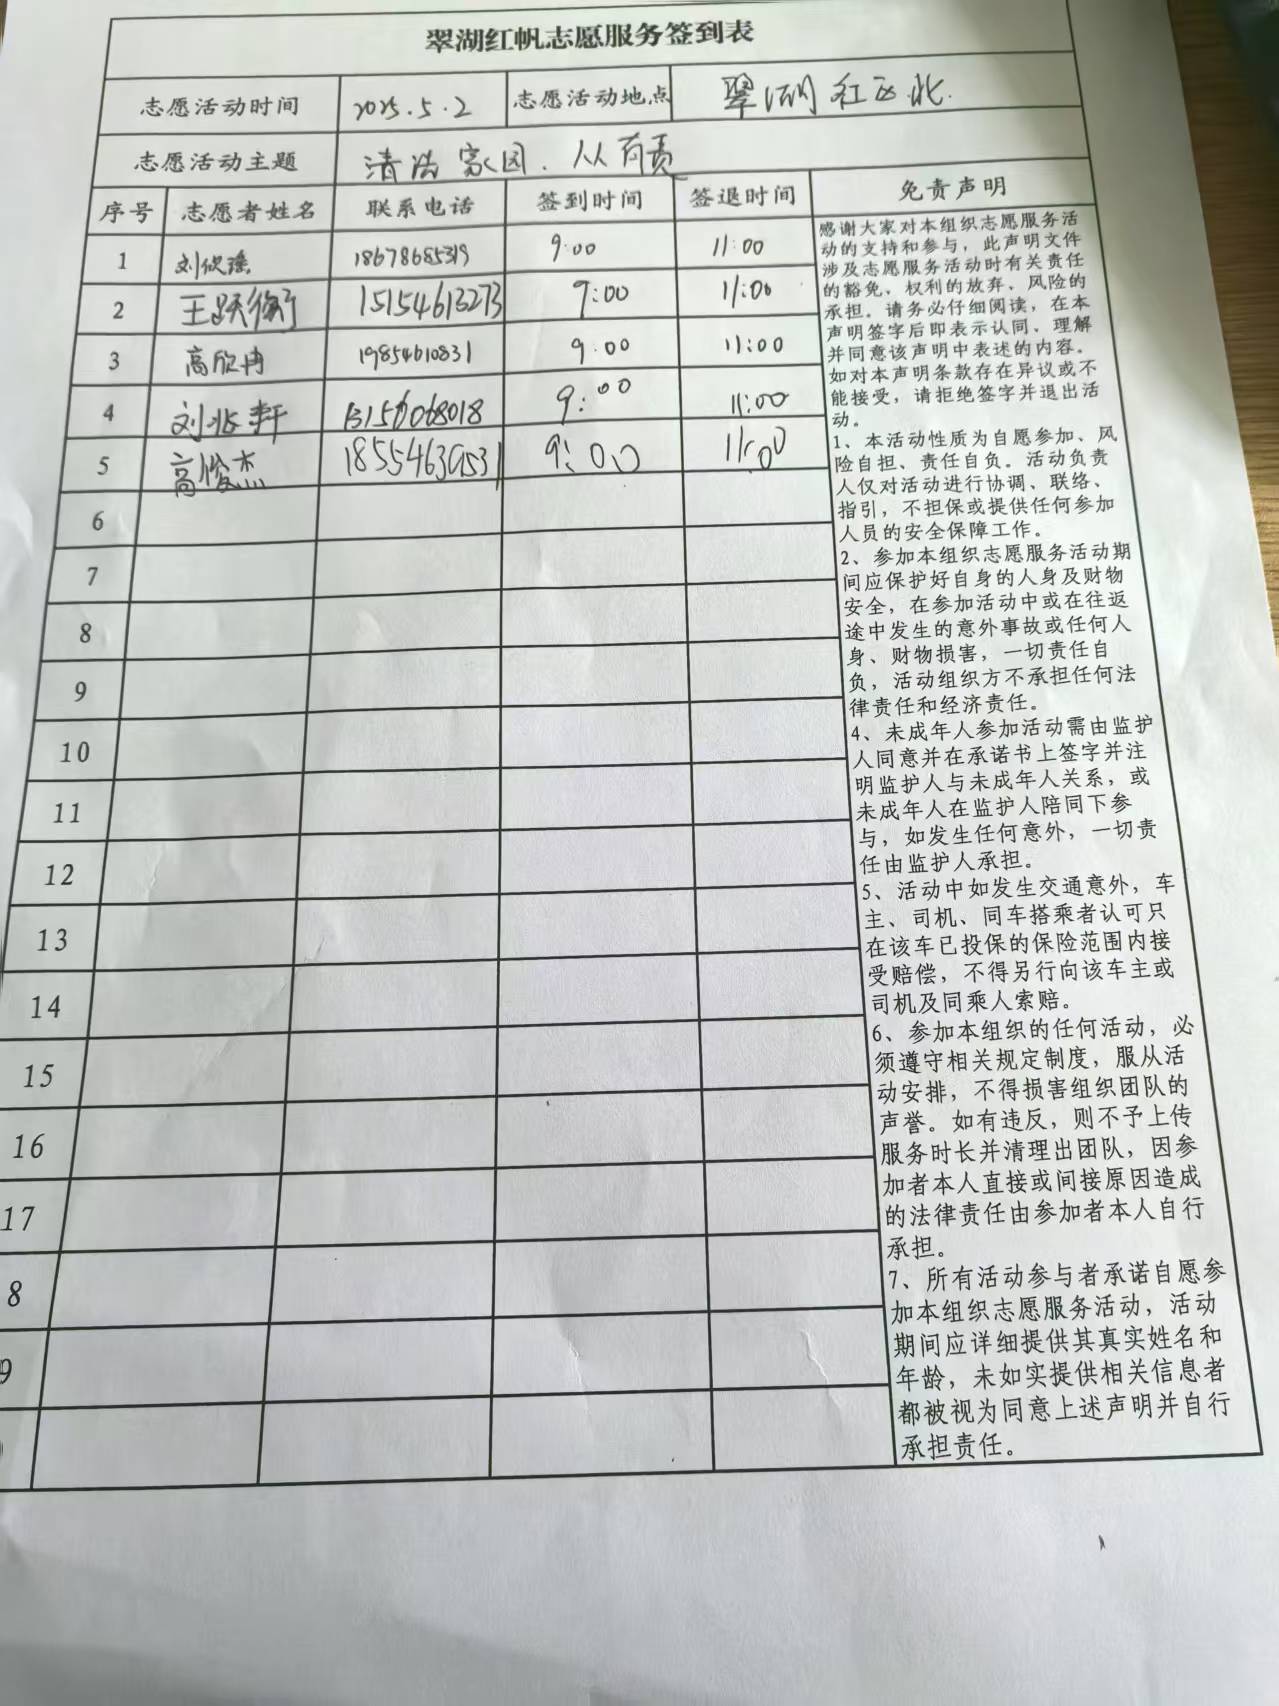 翠湖红帆志愿服务签到表
志愿活动时间 2025.5.2 志愿活动地点 翠湖社区北
志愿活动主题 清洁家园.人人有责
序号 志愿者姓名 联系电话 签到时间 签退时间 免责声明
1 刘欣瑶 18678685319 9:00 11:00
2 王跃衡 15154613273 9:00 11:00
3 高欣冉 19854610831 9.00 11:00
4 刘兆轩 13156068018 9:00 11:00
5 高俊杰 18554639531 9:00 11:00
6
7
8
9
10
11
12
13
14
15
16
17
8
9
感谢大家对本组织志愿服务活
动的支持和参与，此声明文件
涉及志愿服务活动时有关责任
的豁免，权利的放弃，风险的
承担。请务必仔细阅读，在本
声明签字后即表示认同、理解
并同意该声明中表述的内容。
如对本声明条款存在异议或不
能接受，请拒绝签字并退出活
动。
1、本活动性质为自愿参加、风
险自担、责任自负。活动负责
人仅对活动进行协调、联络、
指引，不担保或提供任何参加
人员的安全保障工作。
2、参加本组织志愿服务活动期
间应保护好自身的人身及财物
安全，在参加活动中或在往返
途中发生的意外事故或任何人
身、财物损害，一切责任自
负，活动组织方不承担任何法
律责任和经济责任。
4、未成年人参加活动需由监护
人同意并在承诺书上签字并注
明监护人与未成年人关系，或
未成年人在监护人陪同下参
与，如发生任何意外，一切责
任由监护人承担。
5、活动中如发生交通意外，车
主、司机、同车搭乘者认可只
在该车已投保的保险范围内接
受赔偿，不得另行向该车主或
司机及同乘人索赔。
6、参加本组织的任何活动，必
须遵守相关规定制度，服从活
动安排，不得损害组织团队的
声誉。如有违反，则不予上传
服务时长并清理出团队，因参
加者本人直接或间接原因造成
的法律责任由参加者本人自行
承担。
7、所有活动参与者承诺自愿参
加本组织志愿服务活动，活动
期间应详细提供其真实姓名和
年龄，未如实提供相关信息者
都被视为同意上述声明并自行
承担责任。